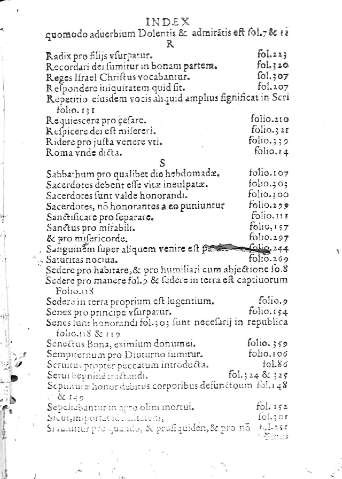 INDEX
quomodo aduerbium Dolentis & admirātis est fol. 7 & 12
R
Radix pro filijs vsurpatur. fol. 223
Recordari dei sumitur in bonam partem. fol. 320
Reges Israel Christus vocabantur. fol. 307
Respondere iniquitatem quid sit. fol. 207
Repetitio eiusdem vocis aliquid amplius significat in Scri
folio. 131
Requiescere pro cesare. folio. 210
Respicere dei est misereri. folio. 321
Ridere pro justa venere vti. folio. 339
Roma vnde dicta. folio. 14
S
Sabbathum pro qualibet die hebdomadæ. folio. 107
Sacerdotes debent esse vitæ inculpatæ. folio. 303
Sacerdotes sunt valde honorandi. folio. 300
Sacerdotes, nō honorantes a eo puniuntur folio. 299
Sanctificare pro separare. folio. 118
Sanctus pro mirabili. folio. 157
& pro misericorde. folio. 297
Sanguinem super aliquem venire est folio. 244
Saturitas nociua. folio. 269
Sedere pro habitare, & pro humiliari cum abjectione fo. 8
Sedere pro manere fol. 9 & sedere in terra est captiuorum
Folio. 118
Sedere in terra proprium est lugentium. folio. 9
Senex pro principe vsurpatur. folio. 154
Senes sunt honorandi fol. 303 sunt necesarij in republica
folio. 118 & 119
Senectus Bona, eximium donum ei. folio. 359
Sempiternum pro Diuturno sumitur. folio. 106
Seruitus propter peccatum introducta. fol. 86
Serui benigne tractandi. fol. 324 & 325
Sepulturæ honor debitus corporibus defunctoum fol. 148
& 149
Sepeliebantur in agro olim mortui. fol. 152
fol. 301
pro & pro & pro nō fol. 251